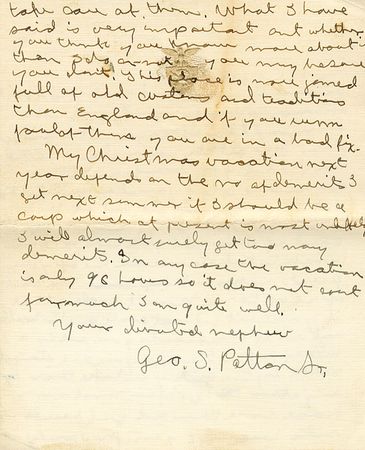 take care of them. What I have
said is very important and whether
you think you know more about it
than I do or not you may because
you don't. This place is more jamed
full of old customs and traditions
than England and if you run
foul of them you are in a bad fix.
My Christmas vacation next
year depends on the no of demerits I
get next summer if I should be a
corp which at present is most unlikely
I will almost surely get too many
demerits. In any case the vacation
is only 96 hours so it does not count
for much I am quite well.
Your devoted nephew
Geo. S. Patton Jr.